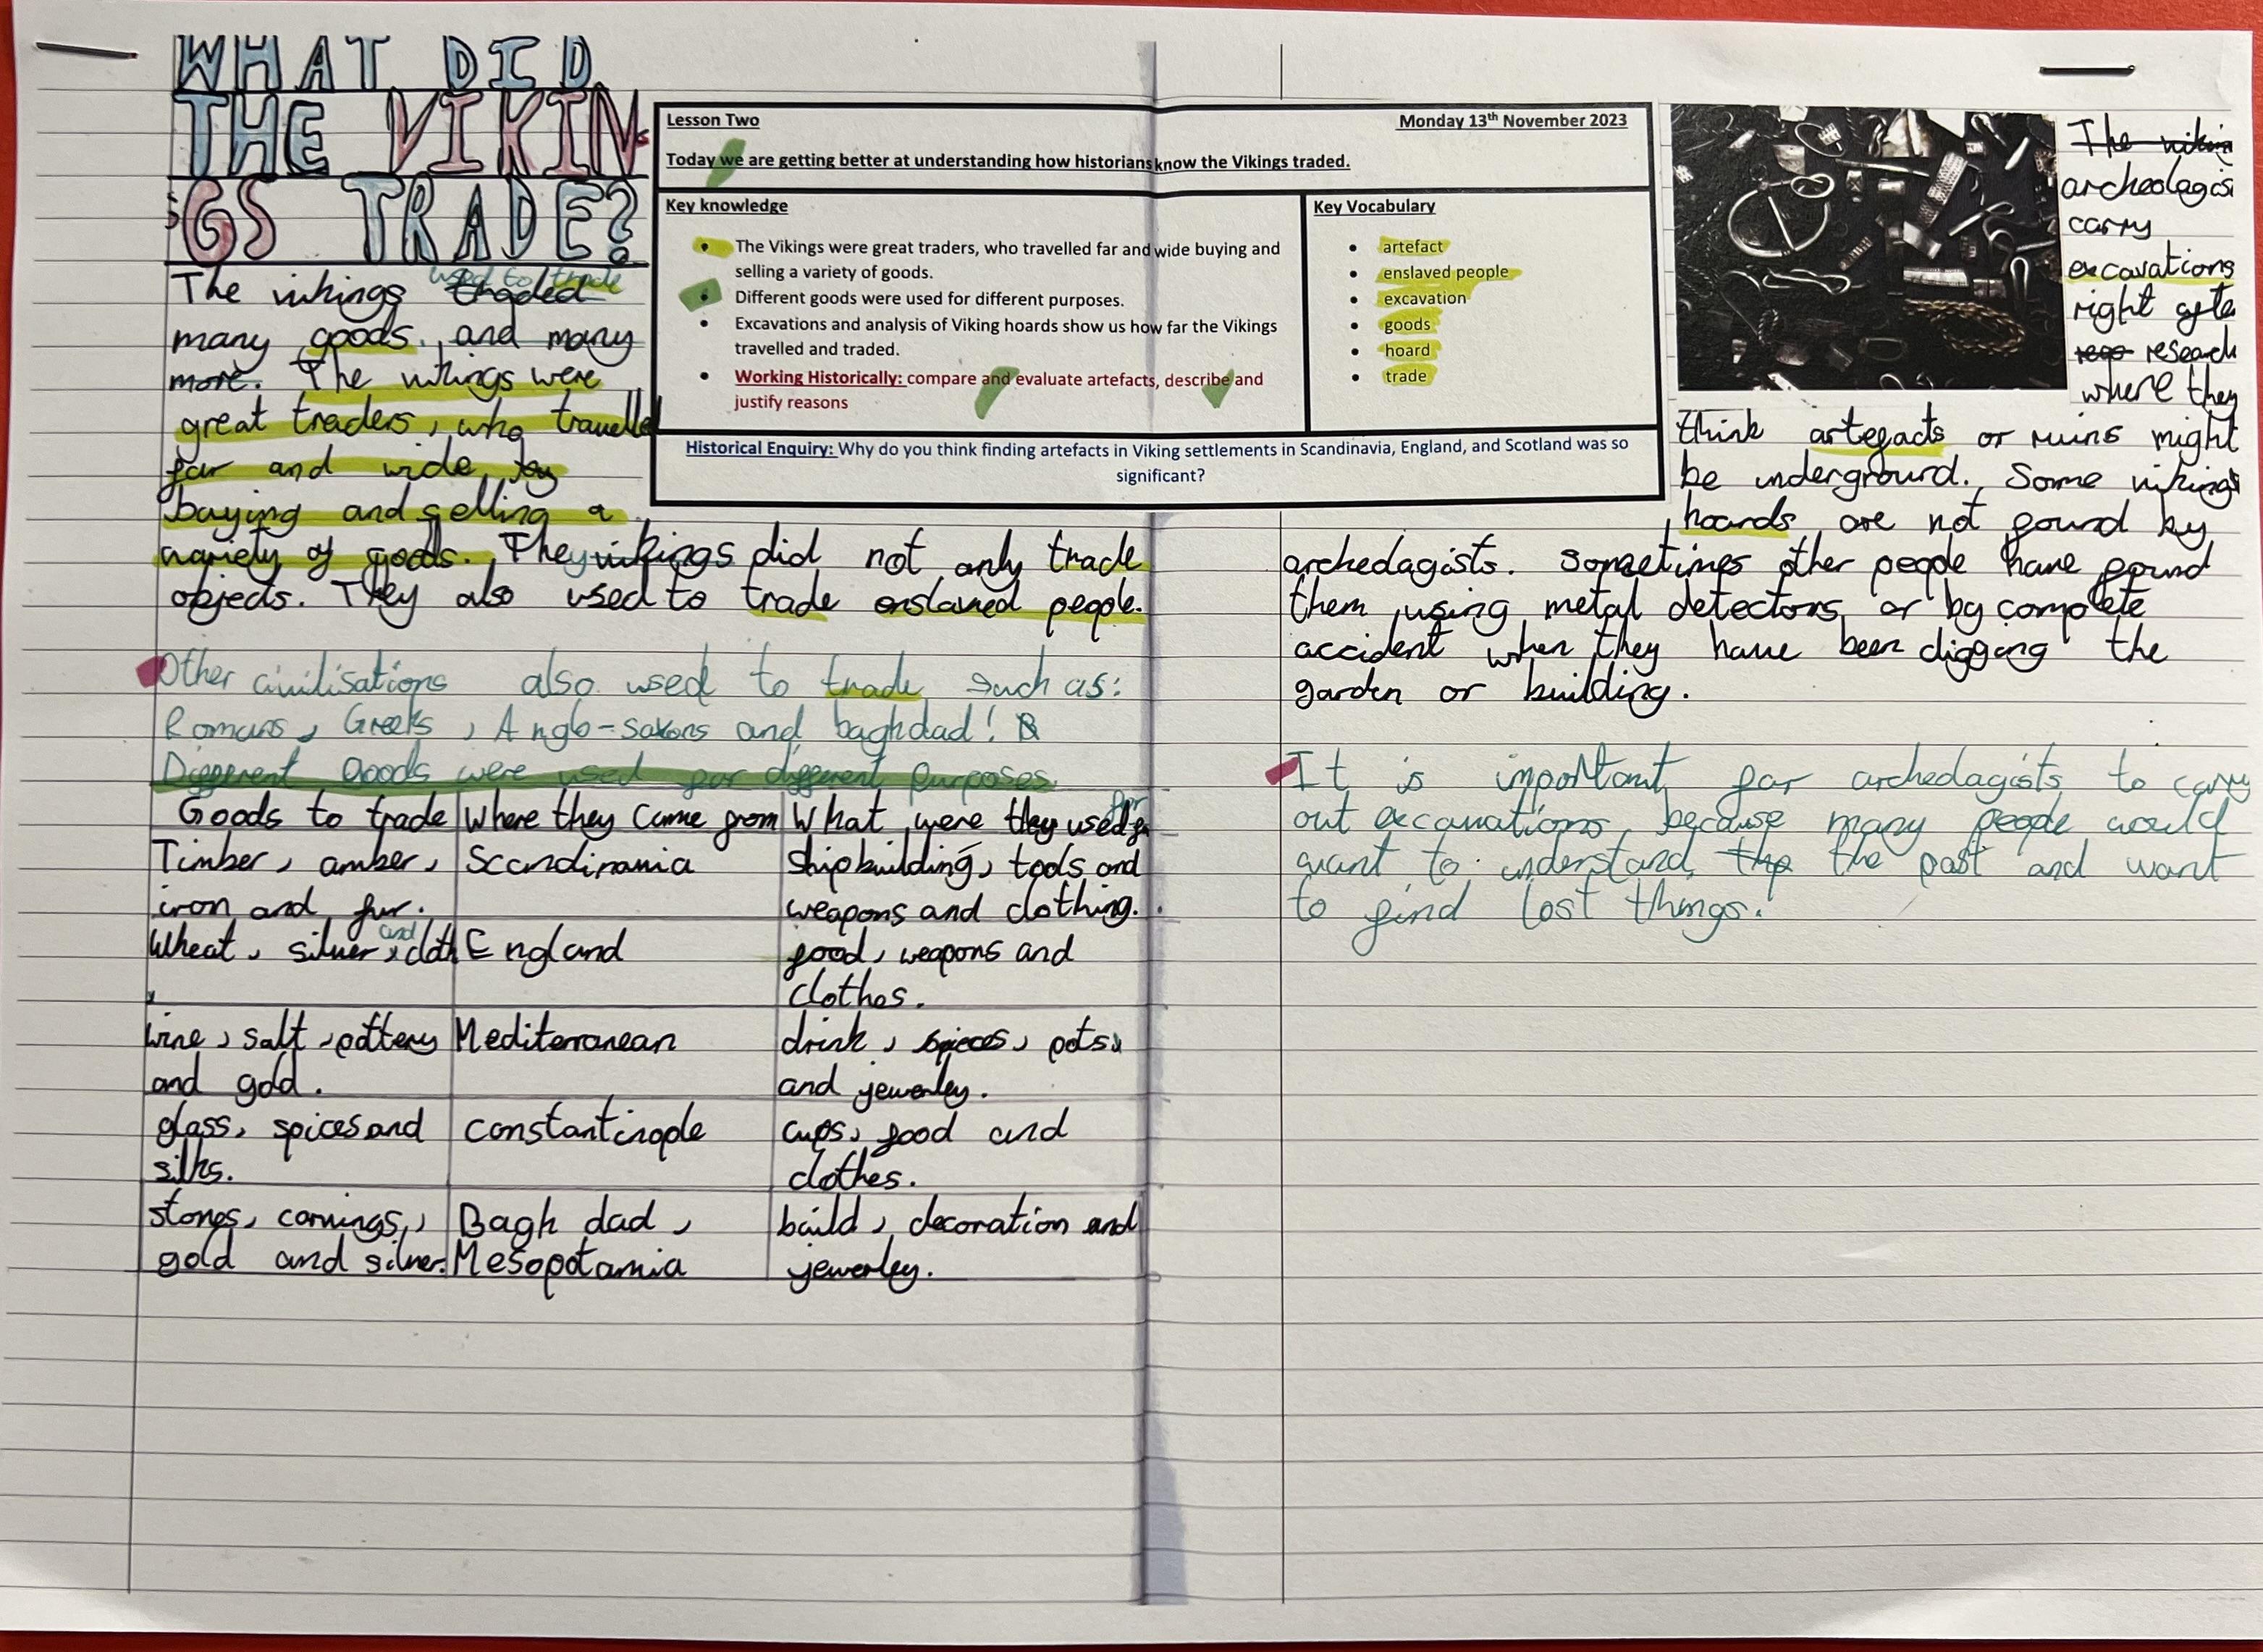 WHAT DID
THE VIKIN
GS TRADE?
Lesson Two
Monday 13th November 2023
Today we are getting better at understanding how historians know the Vikings traded.
Key knowledge
• The Vikings were great traders, who travelled far and wide buying and
selling a variety of goods.
• Different goods were used for different purposes.
• Excavations and analysis of Viking hoards show us how far the Vikings
travelled and traded.
• Working Historically: compare and evaluate artefacts, describe and
justify reasons
Key Vocabulary
• artefact
• enslaved people
• excavation
• goods
• hoard
• trade
Historical Enquiry: Why do you think finding artefacts in Viking settlements in Scandinavia, England, and Scotland was so
significant?
used to trade
The vikings traded
many goods. and many
more. The vikings were
great traders, who travelled
far and wide
buying and selling a
variety of goods. They vikings did not only trade
objects. They also used to trade enslaved people.
Other civilisations also used to trade such as:
Romans, Greeks, Anglo-saxons and baghdad!
Different Goods were used for different purposes.
Goods to trade Where they came from What were they used for
Timber, amber, Scandinavia shipbuilding, tools and
iron and fur. weapons and clothing.
Wheat, silver and cloth England food, weapons and
clothes.
wine, salt, pottery Mediterranean drink, spices, pots,
and gold. and jewerley.
glass, spices and constantinople cups, food and
silks. clothes.
stones, carvings, Bagh dad, build, decoration and
gold and silver. Mesopotamia jewerley.
The viking
archeologis
carry
excavations
right afte
research
where they
think artefacts or ruins might
be underground. Some vikings
hoards are not found by
archeologists. Sometimes other people have found
them using metal detectors or by complete
accident when they have been digging the
garden or building.
It is important for archeologists to carry
out excavations, because many people would
want to understand the the past and want
to find lost things.